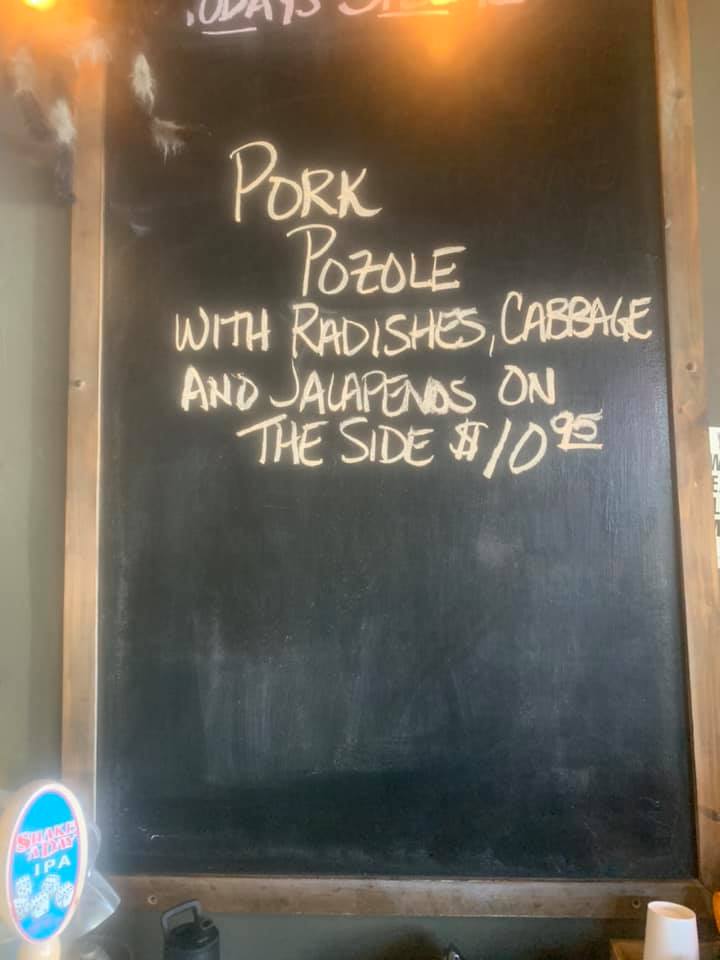 TODAYS
PORK
POZOLE
WITH RADISHES, CABBAGE
AND JALAPENOS ON
THE SIDE $10 95
SHAKE
A DAY
IPA